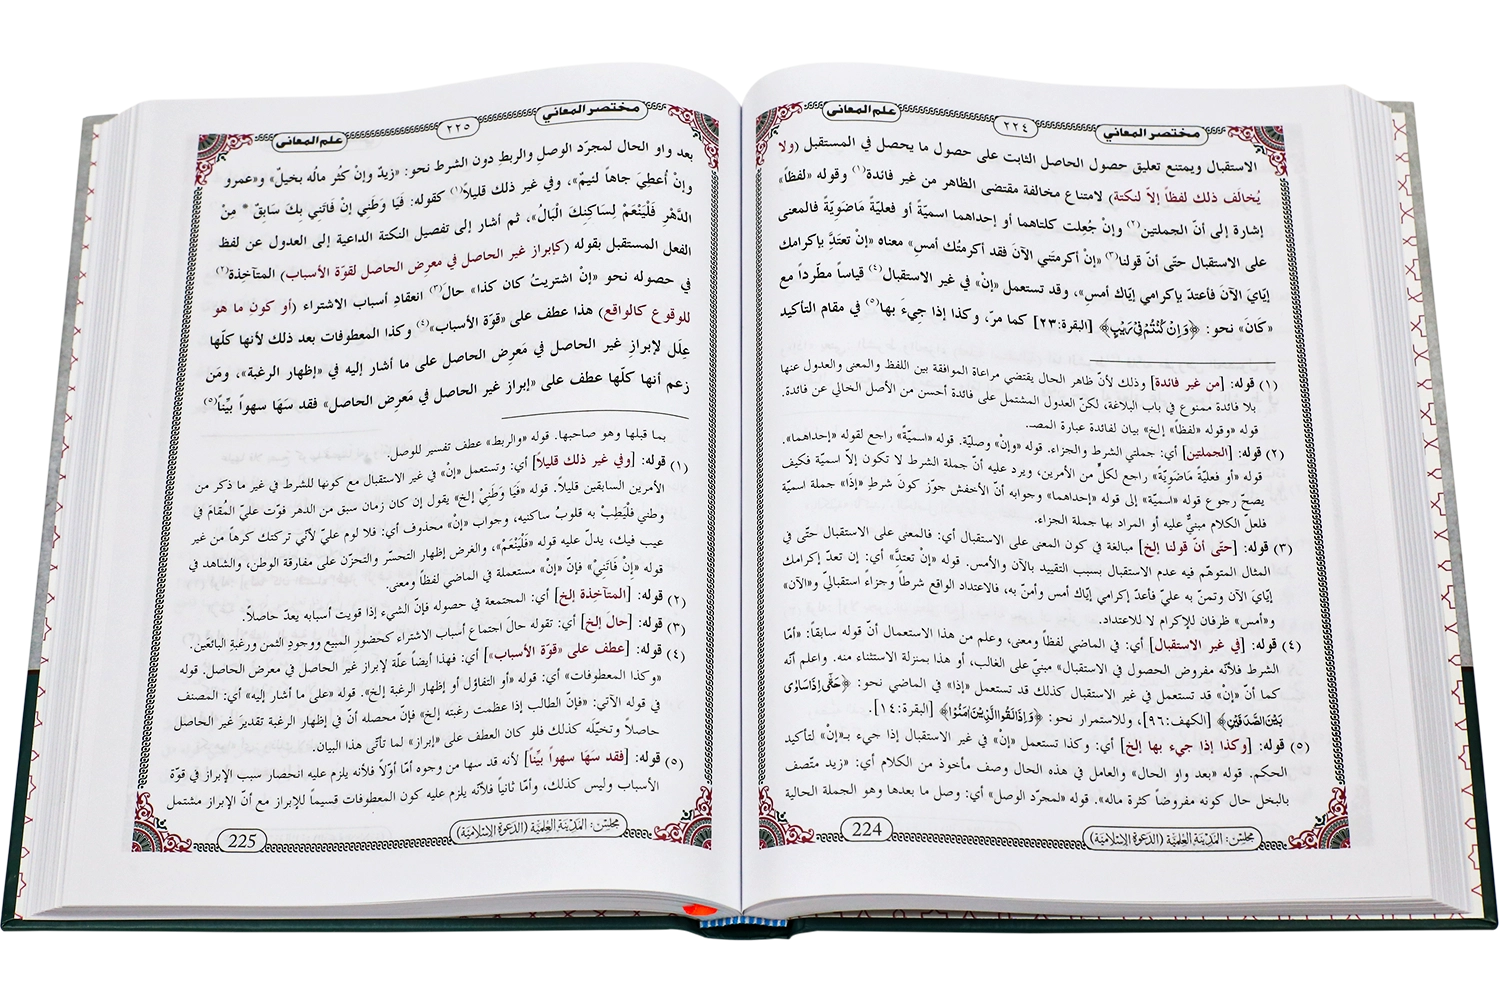 مختصر المعاني
٢٢٤
علم المعاني
الاستقبال ويمتنع تعليق حصول الحاصل الثابت على حصول ما يحصل في المستقبل (ولا
يُخالَف ذلك لفظاً إلاّ لنكتة) لامتناع مخالفة مقتضى الظاهر من غير فائدة(١) وقوله «لفظاً»
إشارة إلى أنّ الجملتين(٢) وإنْ جُعلت كلتاهما أو إحداهما اسميّة أو فعليّة ماضَويّة فالمعنى
على الاستقبال حتّى أنّ قولنا(٣) «إنْ أكرمتَني الآنَ فقد أكرمتُك أمسِ» معناه «إنْ تعتَدَّ بإكرامك
إيّايَ الآنَ فأعتدّ بإكرامي إيّاك أمسِ»، وقد تستعمل «إنْ» في غير الاستقبال(٤) قياساً مطّرداً مع
«كَانَ» نحو: ﴿وَإِنْ كُنْتُمْ فِيْ رَيْبٍ﴾ [البقرة:٢٣] كما مرّ، وكذا إذا جِيءَ بها(٥) في مقام التأكيد
(١) قوله: [من غير فائدة] وذلك لأنّ ظاهر الحال يقتضي مراعاة الموافقة بين اللفظ والمعنى والعدول عنها
بلا فائدة ممنوع في باب البلاغة، لكنّ العدول المشتمل على فائدة أحسن من الأصل الخالي عن فائدة.
قوله «وقوله «لفظاً» إلخ» بيان لفائدة عبارة المصـ
(٢) قوله: [الجملتين] أي: جملتي الشرط والجزاء. قوله «وإنْ» وصليّة. قوله «اسميّة» راجع لقوله «إحداهما».
قوله «أو فعليّة ماضَويّة» راجع لكلّ من الأمرين، ويرد عليه أنّ جملة الشرط لا تكون إلاّ اسميّة فكيف
يصحّ رجوع قوله «اسمية» إلى قوله «إحداهما» وجوابه أنّ الأخفش جوّز كون شرطِ «إذا» جملة اسميّة
فلعلّ الكلام مبنيٌّ عليه أو المراد بها جملة الجزاء.
(٣) قوله: [حتّى أنّ قولنا إلخ] مبالغة في كون المعنى على الاستقبال أي: فالمعنى على الاستقبال حتّى في
المثال المتوهّم فيه عدم الاستقبال بسبب التقييد بالآن والأمس. قوله «إنْ تعتدَّ» أي: إن تعدّ إكرامك
إيّايَ الآن وتمنّ به عليّ فأعدّ إكرامي إيّاك أمس وأمنّ به، فالاعتداد الواقع شرطاً وجزاءً استقبالي و«الآن»
و«أمس» ظرفان للإكرام لا للاعتداد.
(٤) قوله: [في غير الاستقبال] أي: في الماضي لفظاً ومعنى، وعلم من هذا الاستعمال أنّ قوله سابقاً: «أمّا
الشرط فلأنّه مفروض الحصول في الاستقبال» مبنيّ على الغالب، أو هذا بمنزلة الاستثناء منه. واعلم أنّه
كما أنّ «إنْ» قد تستعمل في غير الاستقبال كذلك قد تستعمل «إذا» في الماضي نحو: ﴿حَتّٰى اِذَا سَاوٰى
بَيْنَ الصَّدَفَيْنِ﴾ [الكهف:٩٦]، وللاستمرار نحو: ﴿وَاِذَا لَقُوا الَّذِيْنَ اٰمَنُوْا﴾ [البقرة:١٤].
(٥) قوله: [وكذا إذا جيء بها إلخ] أي: وكذا تستعمل «إنْ» في غير الاستقبال إذا جيء بـ«إنْ» لتأكيد
الحكم. قوله «بعد واو الحال» والعامل في هذه الحال وصف مأخوذ من الكلام أي: «زيد متّصف
بالبخل حال كونه مفروضاً كثرة ماله». قوله «لمجرّد الوصل» أي: وصل ما بعدها وهو الجملة الحالية
مجلس: المدينة العلمية (الدعوة الإسلامية)
224
مختصر المعاني
٢٢٥
علم المعاني
بعد واو الحال لمجرّد الوصلِ والربطِ دون الشرط نحو: «زيدٌ وإنْ كثُر مالُه بخيلٌ» و«عمرو
وإنْ أُعطِيَ جاهاً لئيمٌ»، وفي غير ذلك قليلاً(١) كقوله: فَيَا وَطَنِي إنْ فَاتَنِي بكَ سَابِقٌ * مِنْ
الدَّهْرِ فَلْيَنْعَمْ لِسَاكِنِكَ الْبَالُ»، ثم أشار إلى تفصيل النكتة الداعية إلى العدول عن لفظ
الفعل المستقبل بقوله (كإبراز غير الحاصل في معرِض الحاصل لقوّة الأسباب) المتآخِذة(٢)
في حصوله نحو «إنْ اشتريتُ كان كذا» حالَ(٣) انعقادِ أسباب الاشتراء (أو كون ما هو
للوقوع كالواقع) هذا عطف على «قوّة الأسباب»(٤) وكذا المعطوفات بعد ذلك لأنها كلّها
عِلَل لإبرازِ غير الحاصل في مَعرِض الحاصل على ما أشار إليه في «إظهار الرغبة»، ومَن
زعم أنها كلّها عطف على «إبراز غير الحاصل في مَعرِض الحاصل» فقد سَهَا سهواً بيِّناً(٥)
بما قبلها وهو صاحبها. قوله «والربط» عطف تفسير للوصل.
(١) قوله: [وفي غير ذلك قليلاً] أي: وتستعمل «إنْ» في غير الاستقبال مع كونها للشرط في غير ما ذكر من
الأمرين السابقين قليلاً. قوله «فَيَا وَطَنِيْ إلخ» يقول إن كان زمان سبق من الدهر فوّت عليّ المُقامَ في
وطني فلْيَطِبْ به قلوبُ ساكنيه، وجواب «إنْ» محذوف أي: فلا لوم عليّ لأنّي تركتك كرهاً من غير
عيب فيك، يدلّ عليه قوله «فَلْيَنْعَمْ»، والغرض إظهار التحسّر والتحزّن على مفارقة الوطن، والشاهد في
قوله «إنْ فَاتَنِيْ» فإنّ «إنْ» مستعملة في الماضي لفظاً ومعنى.
(٢) قوله: [المتآخِذة إلخ] أي: المجتمعة في حصوله فإنّ الشيء إذا قويت أسبابه يعدّ حاصلاً.
(٣) قوله: [حالَ إلخ] أي: تقوله حالَ اجتماع أسباب الاشتراء كحضورِ المبيع ووجودِ الثمن ورغبةِ البائعين.
(٤) قوله: [عطف على «قوّة الأسباب»] أي: فهذا أيضاً علّة لإبراز غير الحاصل في معرض الحاصل. قوله
«وكذا المعطوفات» أي: قوله «أو التفاؤل أو إظهار الرغبة إلخ». قوله «على ما أشار إليه» أي: المصنف
في قوله الآتي: «فإنّ الطالب إذا عظمت رغبته إلخ» فإنّ محصله أنّ في إظهار الرغبة تقديرَ غير الحاصل
حاصلاً وتخيّلَه كذلك فلو كان العطف على «إبراز» لما تأتّى هذا البيان.
(٥) قوله: [فقد سَهَا سهواً بيِّناً] لأنه قد سها من وجوه أمّا أوّلاً فلأنه يلزم عليه انحصار سبب الإبراز في قوّة
الأسباب وليس كذلك، وأمّا ثانياً فلأنّه يلزم عليه كون المعطوفات قسيماً للإبراز مع أنّ الإبراز مشتمل
مجلس: المدينة العلمية (الدعوة الإسلامية)
225